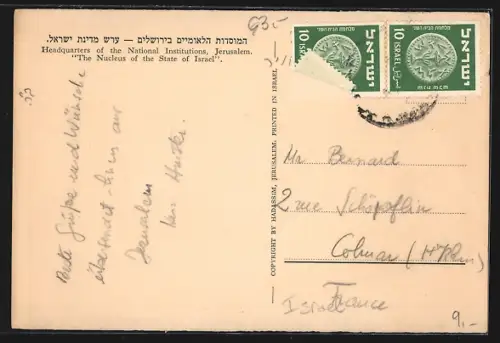 המוסדות הלאומיים בירושלים — ערש מדינת ישראל.
Headquarters of the National Institutions, Jerusalem.
"The Nucleus of the State of Israel".
G3.-
Beste Grüsse und Wünsche
übersendet Ihnen aus
Jerusalem
COPYRIGHT BY HABASSOM, JERUSALEM, PRINTED IN ISRAEL
10 ISRAEL
10 ISRAEL ישראל
Mr Bernard
2 rue Schöpflin
Colmar (Ht Rhin)
France
Israel
9.-